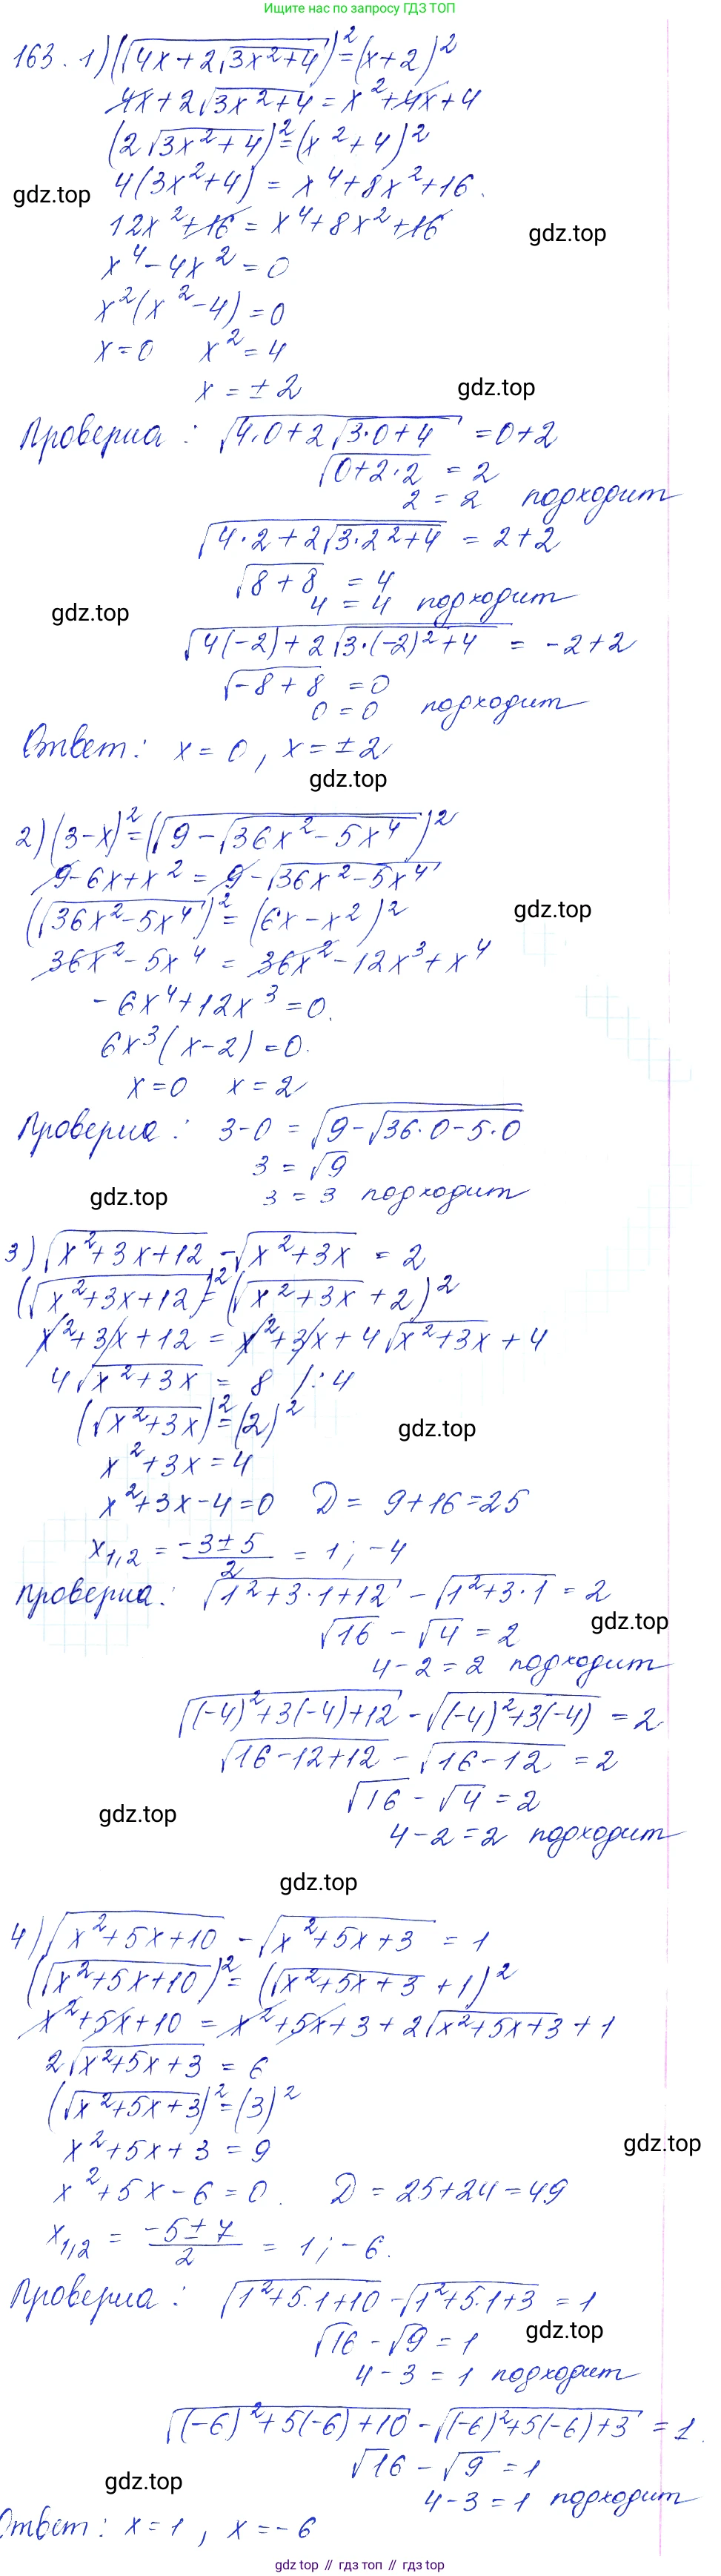 Ищите нас по запросу ГДЗ ТОП
163. 1) (√(4x+2√(3x²+4)))² = (x+2)²
4x+2√(3x²+4) = x²+4x+4
(2√(3x²+4))² = (x²+4)²
4(3x²+4) = x⁴+8x²+16.
gdz.top
12x²+16 = x⁴+8x²+16
gdz.top
x⁴-4x² = 0
x²(x²-4) = 0
x=0 x²=4
x = ±2
gdz.top
Проверка: √(4·0+2√(3·0+4)) = 0+2
√(0+2·2) = 2
2 = 2 подходит
√(4·2+2√(3·2²+4)) = 2+2
√(8+8) = 4
4 = 4 подходит
gdz.top
√(4(-2)+2√(3·(-2)²+4)) = -2+2
√(-8+8) = 0
0=0 подходит
Ответ: x=0, x=±2
gdz.top
2) (3-x)² = (√(9-√(36x²-5x⁴)))²
9-6x+x² = 9-√(36x²-5x⁴)
(√(36x²-5x⁴))² = (6x-x²)²
gdz.top
36x²-5x⁴ = 36x²-12x³+x⁴
-6x⁴+12x³=0.
6x³(x-2)=0.
x=0 x=2
Проверка: 3-0 = √(9-√(36·0-5·0))
3 = √9
gdz.top
3 = 3 подходит
3) √(x²+3x+12) - √(x²+3x) = 2
(√(x²+3x+12))² = (√(x²+3x)+2)²
x²+3x+12 = x²+3x+4√(x²+3x)+4
4√(x²+3x) = 8 /:4
(√(x²+3x))² = (2)²
gdz.top
x²+3x=4
x²+3x-4=0 D = 9+16=25
x₁,₂ = (-3±5)/2 = 1; -4
Проверка: √(1²+3·1+12) - √(1²+3·1) = 2
gdz.top
√16 - √4 = 2
4-2=2 подходит
√((-4)²+3(-4)+12) - √((-4)²+3(-4)) = 2
√(16-12+12) - √(16-12) = 2
√16 - √4 = 2
gdz.top
4-2=2 подходит
gdz.top
4) √(x²+5x+10) - √(x²+5x+3) = 1
(√(x²+5x+10))² = (√(x²+5x+3)+1)²
x²+5x+10 = x²+5x+3+2√(x²+5x+3)+1
2√(x²+5x+3) = 6
(√(x²+5x+3))² = (3)²
x²+5x+3 = 9
gdz.top
x²+5x-6=0. D = 25+24=49
x₁,₂ = (-5±7)/2 = 1; -6.
Проверка: √(1²+5·1+10) - √(1²+5·1+3) = 1
√16 - √9 = 1
gdz.top
4-3 = 1 подходит
√((-6)²+5(-6)+10) - √((-6)²+5(-6)+3) = 1.
√16 - √9 = 1
gdz.top
4-3=1 подходит
Ответ: x=1, x=-6
gdz.top // гдз.топ // гдз.top